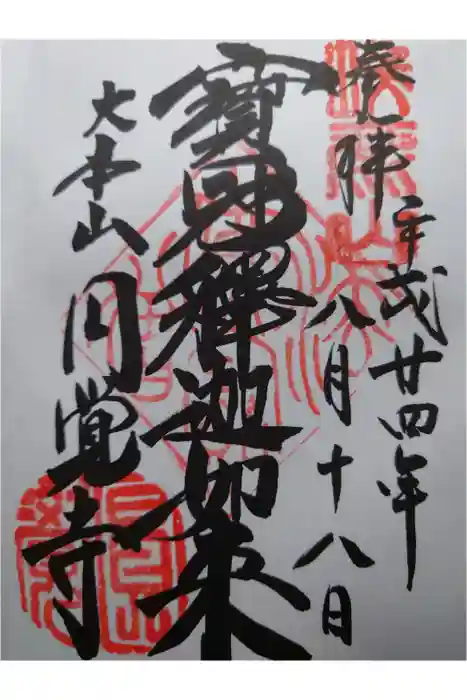 奉拝
平成廿四年
八月十八日
寶冠釋迦如来
大本山
円覚寺